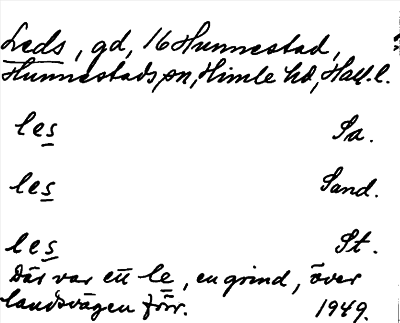 Leds, gd, 16 Hunnestad,
Hunnestads sn, Himle hd, Hall. l.
les Sa.
les Sand.
les St.
Där var ett le, en grind, över
landsvägen förr. 1949.